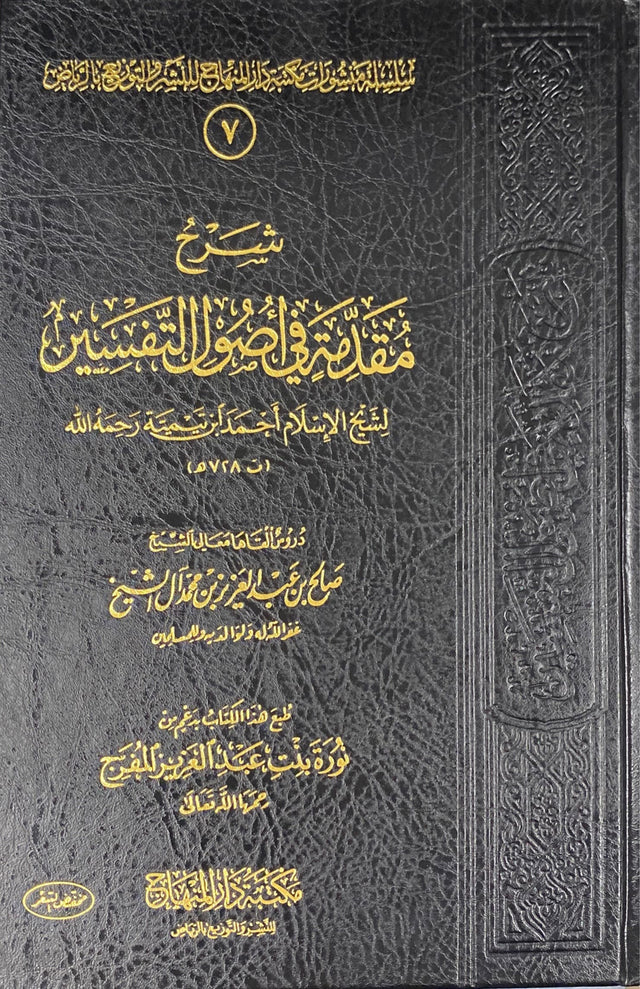 سلسلة منشورات مكتبة دار المنهاج للنشر والتوزيع بالرياض
٧
شَرْحُ
مُقَدِّمَةٍ فِي أُصُولِ التَّفْسِيرِ
لِشَيْخِ الإِسْلَامِ أَحْمَدَ ابْنِ تَيْمِيَّة رَحِمَهُ اللّٰه
(ت ٧٢٨هـ)
دُرُوسٌ أَلْقَاهَا مَعَالِي الشَّيْخِ
صَالِح بن عَبد العَزِيز بن مُحَمَّد آل الشَّيْخ
غفر اللّٰه له ولوالديه وللمسلمين
طُبِعَ هَذَا الكِتَابُ بِدَعْمٍ مِن
نُورَة بِنْتِ عَبْدِ العَزِيزِ المُفَرِّج
رحمها اللّٰه تعالى
مَكتَبَة دَارُ المِنْهَاج
للنشر والتوزيع بالرياض
مخفض السعر